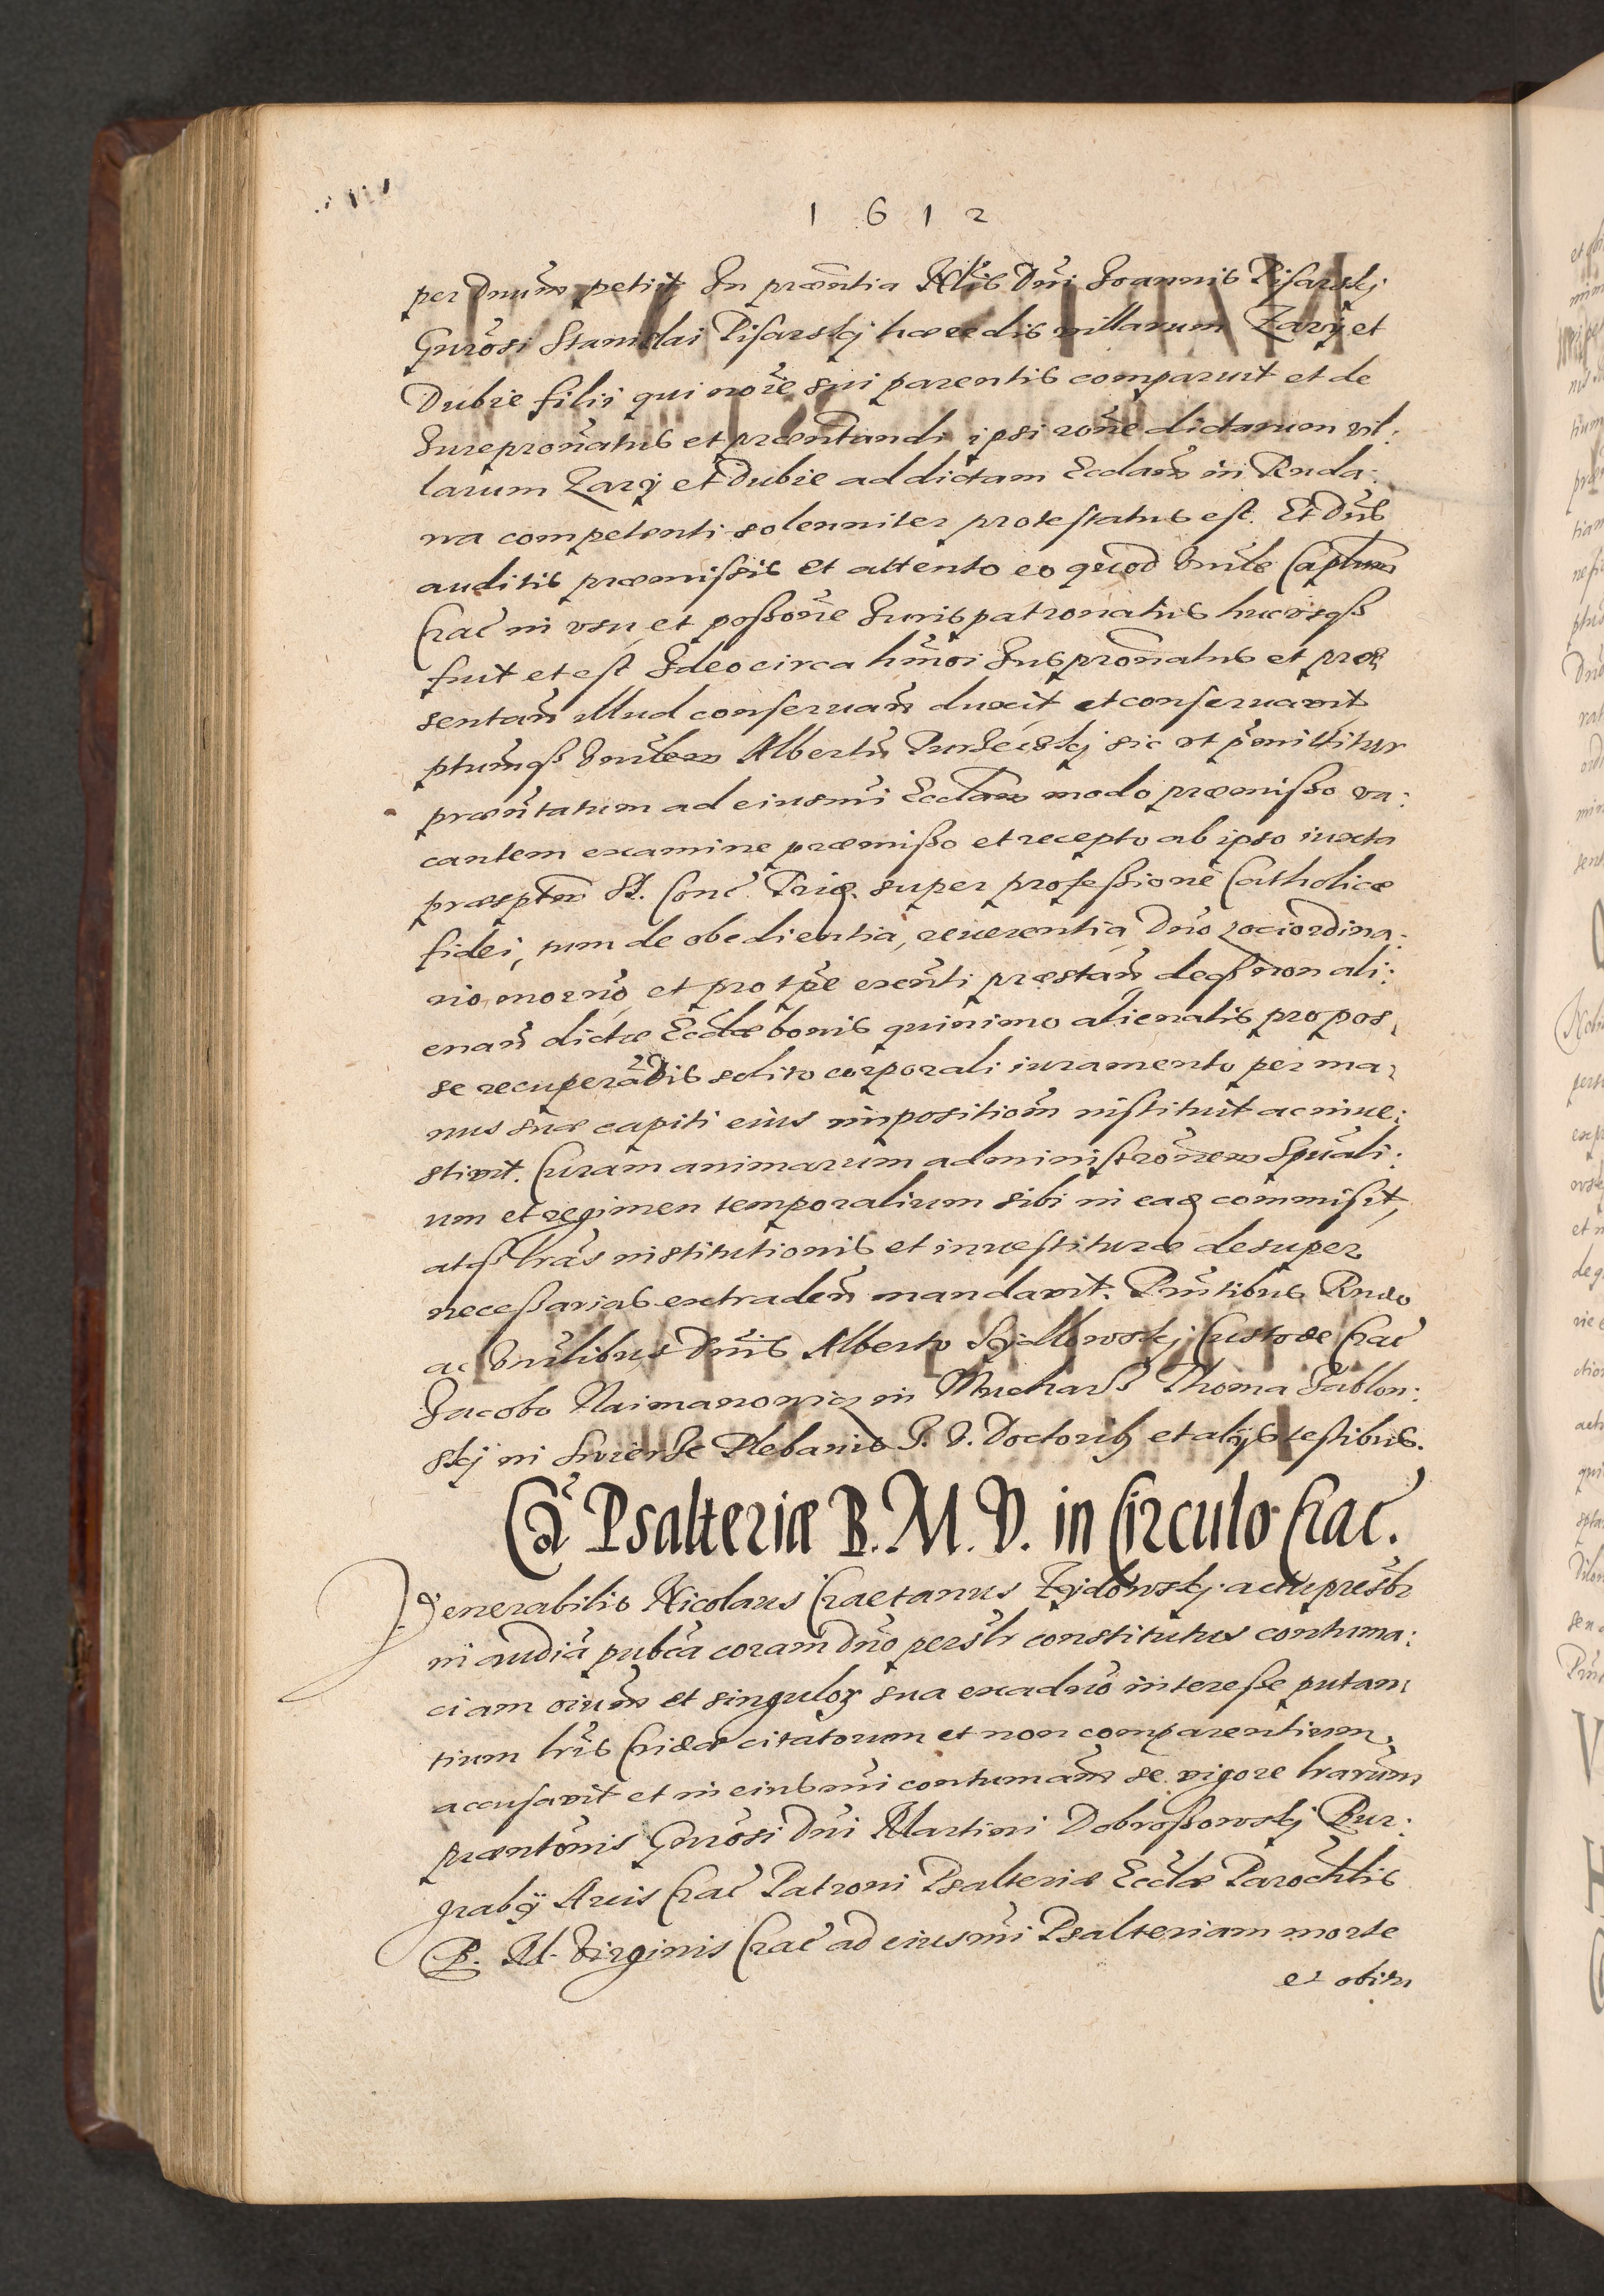 1612
per Dnum petiit In præntia Nlis Dni Joannis Pisarskj
Gnrosi Stanislai Pisarskj hæredis villarum Zary et
Dubie filii qui noie sui parentis comparuit et de
Jurepronatus et præntandi ipsi rone dictarum vil:
larum Zary et Dubie ad dictam Ecclam in Ruda:
wa competenti solenniter protestatus est. Et Dns
auditis præmissis et attento eo quod Vnrle Captum
Crac in vsu et possone Jurispatronatus hucvsqß
fuit et est Ideo circa hmoi Juspronatus et præ
sentan illud conseruan duxit et conseruauit
ptumqß Vnrlem Albertu sic vt pmittitur
præntatum ad eiusmi Ecclam modo præmisso va:
cantem examine præmisso et recepto ab ipso iuxta
præsptm St. Conc. Trid. super professione Catholicæ
fidei, tum de obedientia, reuerentia Dno Lociordina:
rio, moerno, et pro tpe exenti præstan deqß non ali:
enan dictæ Ecclæ bonis quinimo alienatis pro pos,
se recuperadis solito corporali iuramento per ma,
nus suæ capiti eius impositiom instituit ac inue:
stiuit. Curam animarum administronem Spuali:
um et regimen temporalium sibi in eadem commisit,
atqß lras institutionis et inuestituræ desuper
necessarias extraden mandauit. Pntibus Rndo
ac Vnrlibus Dnis Alberto Custode Crac
Jacobo Naimanowicz in Mucharß Thoma Jablon:
skj in Plebanis J. V. Doctorib et alijs testibus.
Ca Psalteriæ B. M. V. in Circulo Crac.
Venerabilis Nicolaus Caetanus Zydowskj actu presbr
in audia pubca coram Dno persolr constitutus contuma:
ciam oium et singulor sua exaduo interesse putan,
tium lris Cridæ citatorum et non comparentium
accusauit et in eiusmi contumam se vigore lrarum
præntonis Gnrosi Dni Martini Dobroßowskj Bur:
grabij Arcis Crac Patroni Psalteriæ Ecclæ Parochlis
B. M. Virginis Crac ad eiusmi Psalteriam morte
et obitu